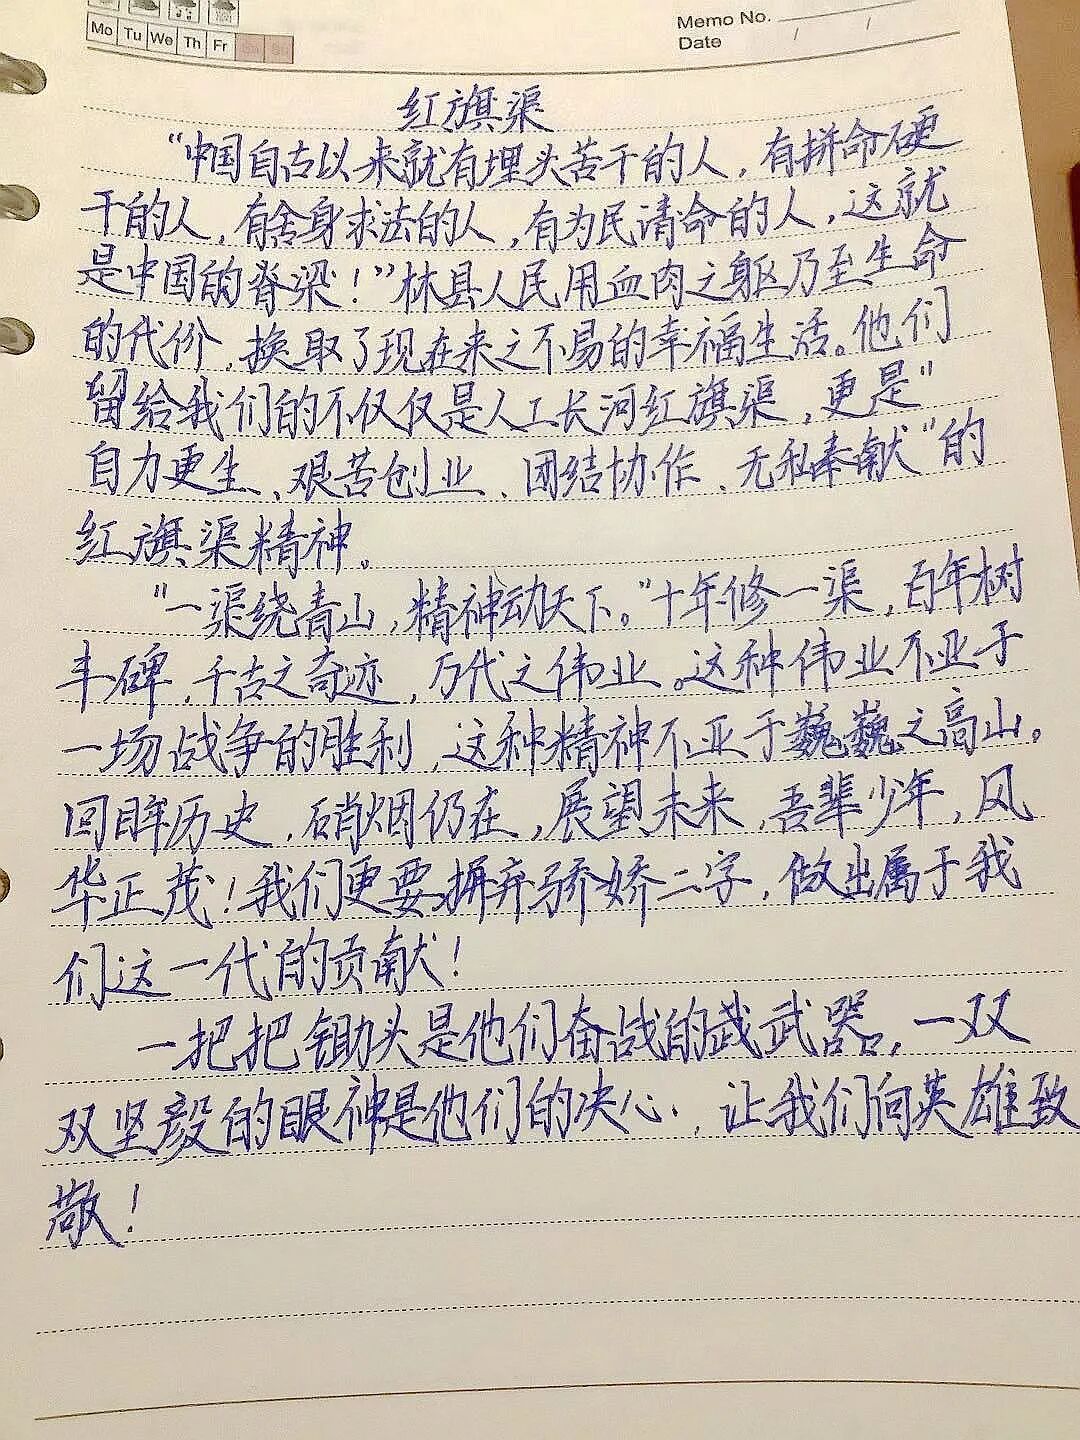 Mo Tu We Th Fr Sa Su
Memo No.
Date / /
红旗渠
“中国自古以来就有埋头苦干的人，有拼命硬
干的人，有舍身求法的人，有为民请命的人，这就
是中国的脊梁！”林县人民用血肉之躯乃至生命
的代价，换取了现在来之不易的幸福生活。他们
留给我们的不仅仅是人工长河红旗渠，更是“
自力更生、艰苦创业、团结协作、无私奉献”的
红旗渠精神。
“一渠绕青山，精神动天下。”十年修一渠，百年树
丰碑，千古之奇迹，万代之伟业。这种伟业不亚于
一场战争的胜利，这种精神不亚于巍巍之高山。
回眸历史，硝烟仍在，展望未来，吾辈少年，风
华正茂！我们更要摒弃骄娇二字，做出属于我
们这一代的贡献！
一把把锄头是他们奋战的武武器，一双
双坚毅的眼神是他们的决心，让我们向英雄致
敬！